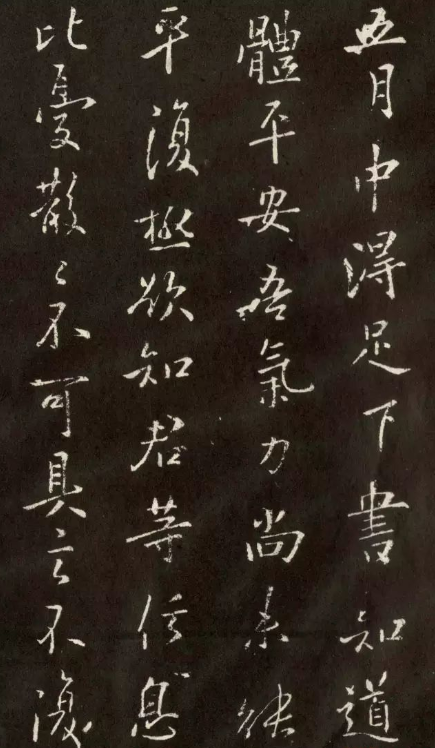 五月中得足下書知道
體平安吾氣力尚未能
平復極欲知君等信息
比憂散〻不可具言不復